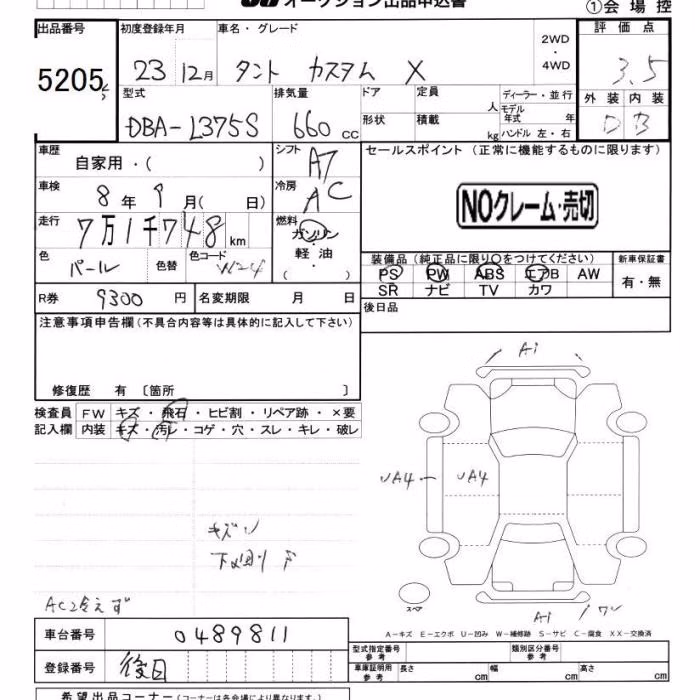 オークション出品申込書
①会場控
出品番号 初度登録年月 車名・グレード 2WD・4WD 評価点
5205 23 12月 タント カスタム X 3.5
型式 排気量 ドア 定員 人 ディーラー・並行 外装 内装
DBA-L375S 660 cc 形状 積載 kg モデル年式 年 ハンドル 左・右 D B
車歴 自家用・( ) シフト A7 セールスポイント (正常に機能するものに限ります)
車検 8年 9月( 日) 冷房 AC
NOクレーム・売切
走行 7万1千748 km 燃料 ガソリン・軽油・( )
色 パール 色替 色コード W24
装備品(純正品に限り○をつけてください) 新車保証書
PS PW ABS エアB AW 有・無
SR ナビ TV カワ
R券 9300円 名変期限 月 日 後日品
注意事項申告欄(不具合内容等は具体的に記入して下さい)
修復歴 有 〔箇所 〕
検査員 FW キズ・飛石・ヒビ割・リペア跡・×要
記入欄 内装 キズ・汚レ・コゲ・穴・スレ・キレ・破レ
A1
UA4 UA4
キズ
AC2冷えず
スペア
A1 ワレ
A-キズ E-エクボ U-凹み W-補修跡 S-サビ C-腐食 XX-交換済
車台番号 0489811
型式指定番号 参考 類別区分番号 参考
登録番号 後日
車庫証明用 参考 長さ cm 幅 cm 高さ cm
希望出品コーナー(コーナーは各会場により異なります。)